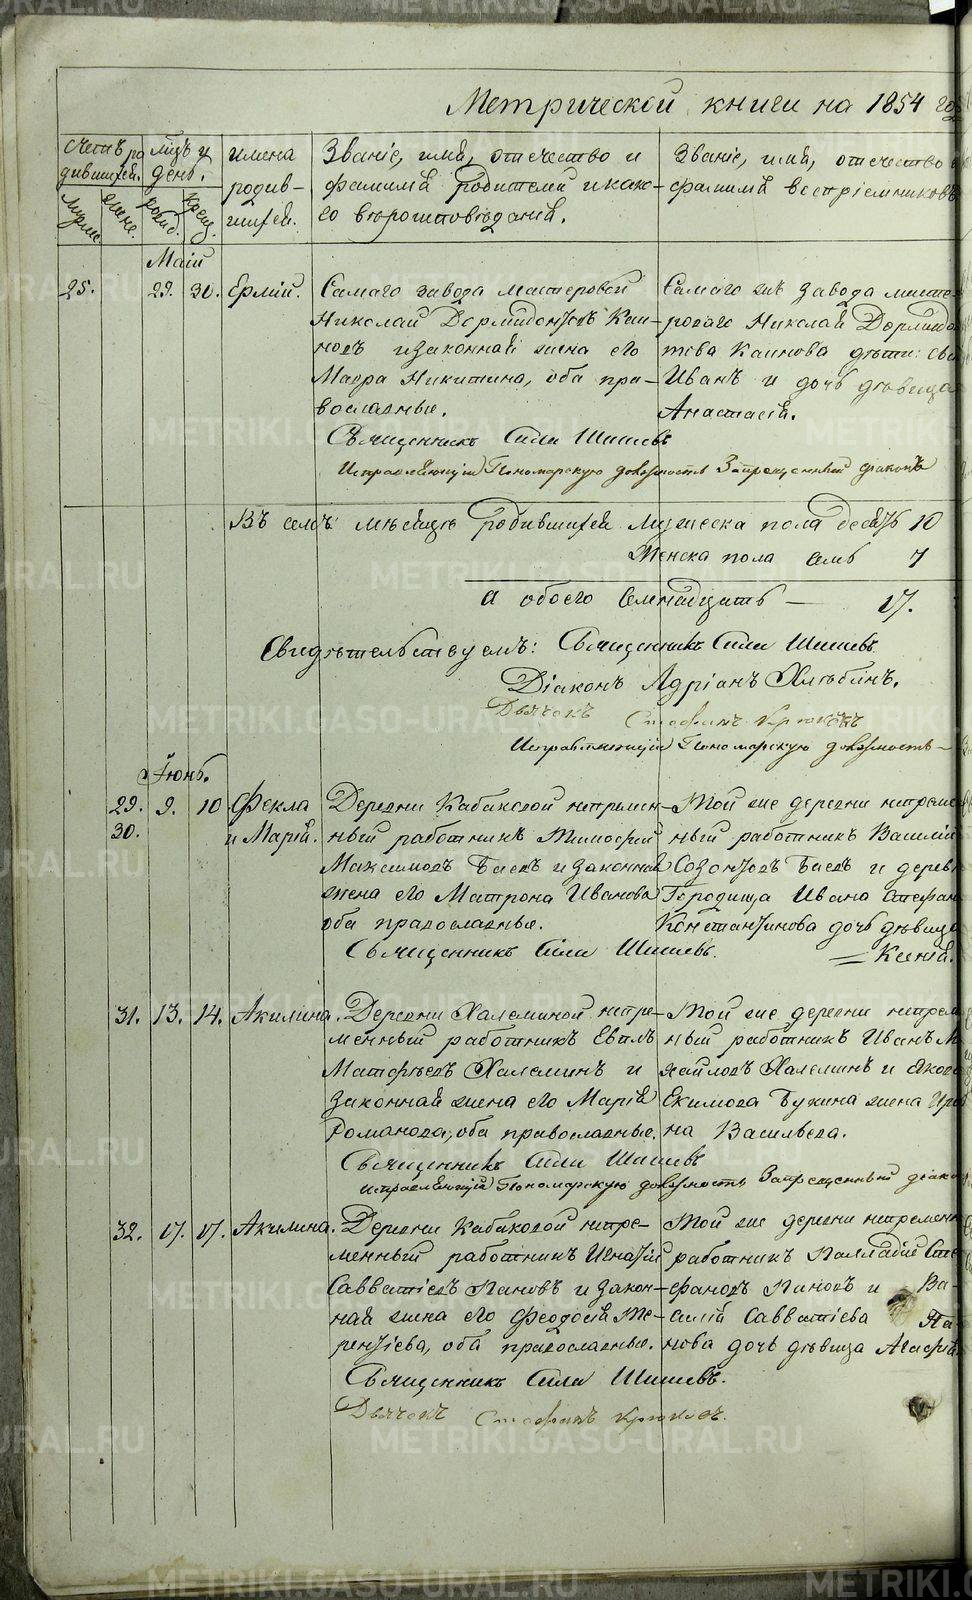 Метрической книги на 1854 год
Счетъ родившихся.
Мѣсяцъ и день.
имена родившихся.
Званіе, имя, отечество и
фамилія родителей и какого вѣроисповѣданія.
Званіе, имя, отечество и
фамилія воспріемниковъ
мужск.
женс.
рожд.
крещ.
Маій
25. 29. 30. Ермій. Самаго завода мастеровой
Николай Дормидонтовъ Каиновъ и законная жена его
Мавра Никитина, оба православные.
Самаго же завода мастероваго Николая Дормидонтова Каинова дѣти: сынъ
Иванъ и дочь дѣвица
Анастасія.
Священникъ Сила Шишевъ
Исправляющій Пономарскую должность Запрещенный діаконъ
Въ семъ мѣсяцѣ родившихся мужеска пола десять 10
Женска пола семь 7
А обоего семнадцать — 17.
Свидѣтельствуемъ: Священникъ Сила Шишевъ
Діаконъ Адріанъ Хлѣбинъ.
Дьячокъ Стефанъ Крюковъ
Исправляющій Пономарскую должность —
Іюнь.
29. 30. 9. 10 Фекла и Марія.
Деревни Кабаковой непременный работникъ Тимофей
Максимовъ Баевъ и законная
жена его Матрона Иванова
оба православные.
Той же деревни непременный работникъ Василій
Созонтовъ Баевъ и деревни
Городища Ивана Стефанова
Константинова дочь дѣвица
Ксенія.
Священникъ Сила Шишевъ.
31. 13. 14. Акилина.
Деревни Халеминой непременный работникъ Евплъ
Матфѣевъ Халеминъ и
законная жена его Марія
Романова, оба православные.
Той же деревни непременный работникъ Иванъ Михайловъ Халеминъ и Якова
Екимова Букина жена Ирина Васильева.
Священникъ Сила Шишевъ
Исправляющій Пономарскую должность Запрещенный діаконъ
32. 17. 17. Акилина.
Деревни Кабаковой непременный работникъ Игнатій
Савватіевъ Пановъ и законная жена его Феодосія Терентіева, оба православные.
Той же деревни непременный
работникъ Палладій Стефановъ Пановъ и Василія Савватіева Панова дочь дѣвица Агафія.
Священникъ Сила Шишевъ.
Дьячокъ Стефанъ Крюковъ.
METRIKI.GASO-URAL.RU